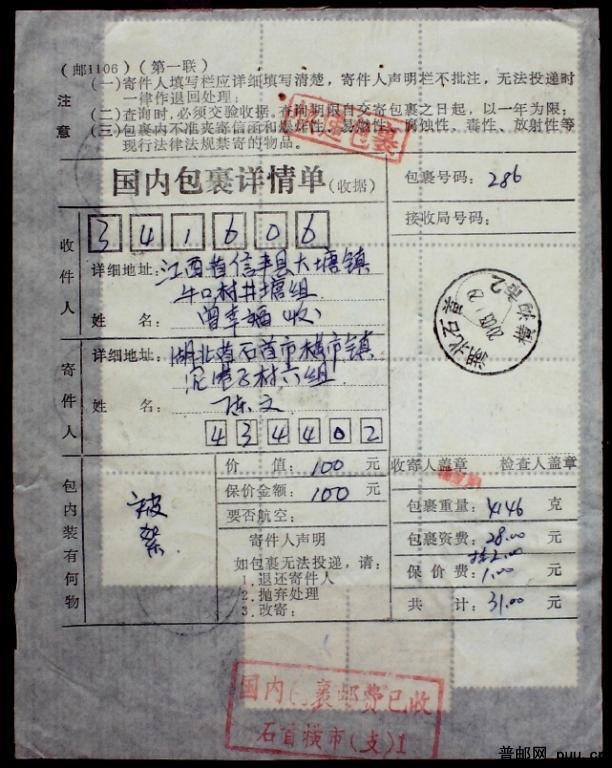 (邮1106)(第一联)
注意
(一)寄件人填写栏应详细填写清楚，寄件人声明栏不批注，无法投递时
一律作退回处理；
(二)查询时，必须交验收据。查询期限自交寄包裹之日起，以一年为限；
(三)包裹内不准夹寄信函和爆炸性、易燃性、腐蚀性、毒性、放射性等
现行法律法规禁寄的物品。
国内包裹详情单(收据)
包裹号码：286
接收局号码：
收件人
341606
详细地址：江西省信丰县大塘镇
牛口村井塘组
姓 名：曾幸福(收)
湖北石首
寄件人
详细地址：湖北省石首市横市镇
沱港子村六组
姓 名：陈文
434402
包内装有何物
被絮
价 值：100 元
保价金额：100 元
要否航空：
寄件人声明
如包裹无法投递，请：
1.退还寄件人
2.抛弃处理
3.改寄：
收寄人盖章 检查人盖章
包裹重量：4146 克
包裹资费：28.00 元
挂2.00
保 价 费：1.00 元
共 计：31.00 元
国内包裹邮费已收
石首横市(支)1
普邮网 puu.cn